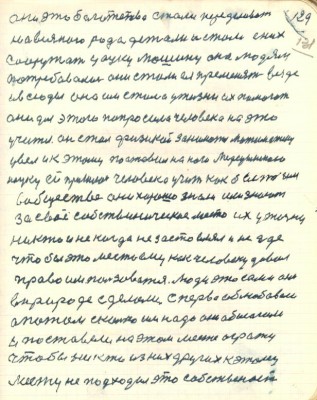 они это богатство стали переделоват
на всякого рода детали и стали с них
сооружат
потребовалас они стали ея применят везде
и всюды она им стала у жизни их помогат
они для этого попросили человека на это
учится. он стал физикой заниматся Математику
увел и к этому поставил на ного Медецинского
науку ее человека учит как в
Собществе они хорошо знали и их знают
за своё собственическое место их у жизни
никто и не когда не заставлял и не где
что бы это место ему как человеку давал
право им ползоватся. Люди это сами они
в природе сделали, сперва облюбовали
а потом сколко им надо они обмежали
и поставили на этом месте огражу
чтобы ни кто из них других к этому
месту не подходил это собственост